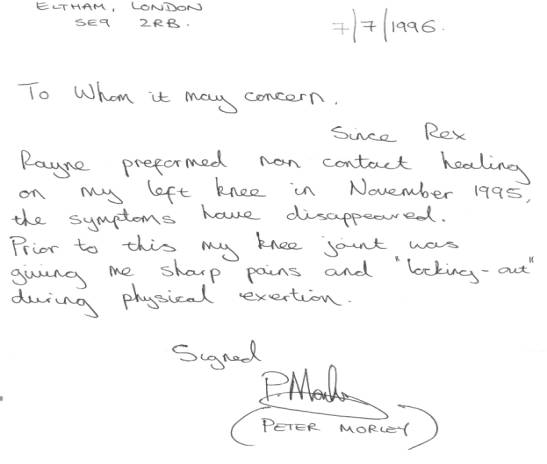 ELTHAM, LONDON
SE9 2RB.
7/7/1996.
To Whom it may concern.
Since Rex
Rayne preformed non contact healing
on my left knee in November 1995,
the symptoms have disappeared.
Prior to this my knee joint was
giving me sharp pains and "locking-out"
during physical exertion.
Signed
P. Morley
(PETER MORLEY)